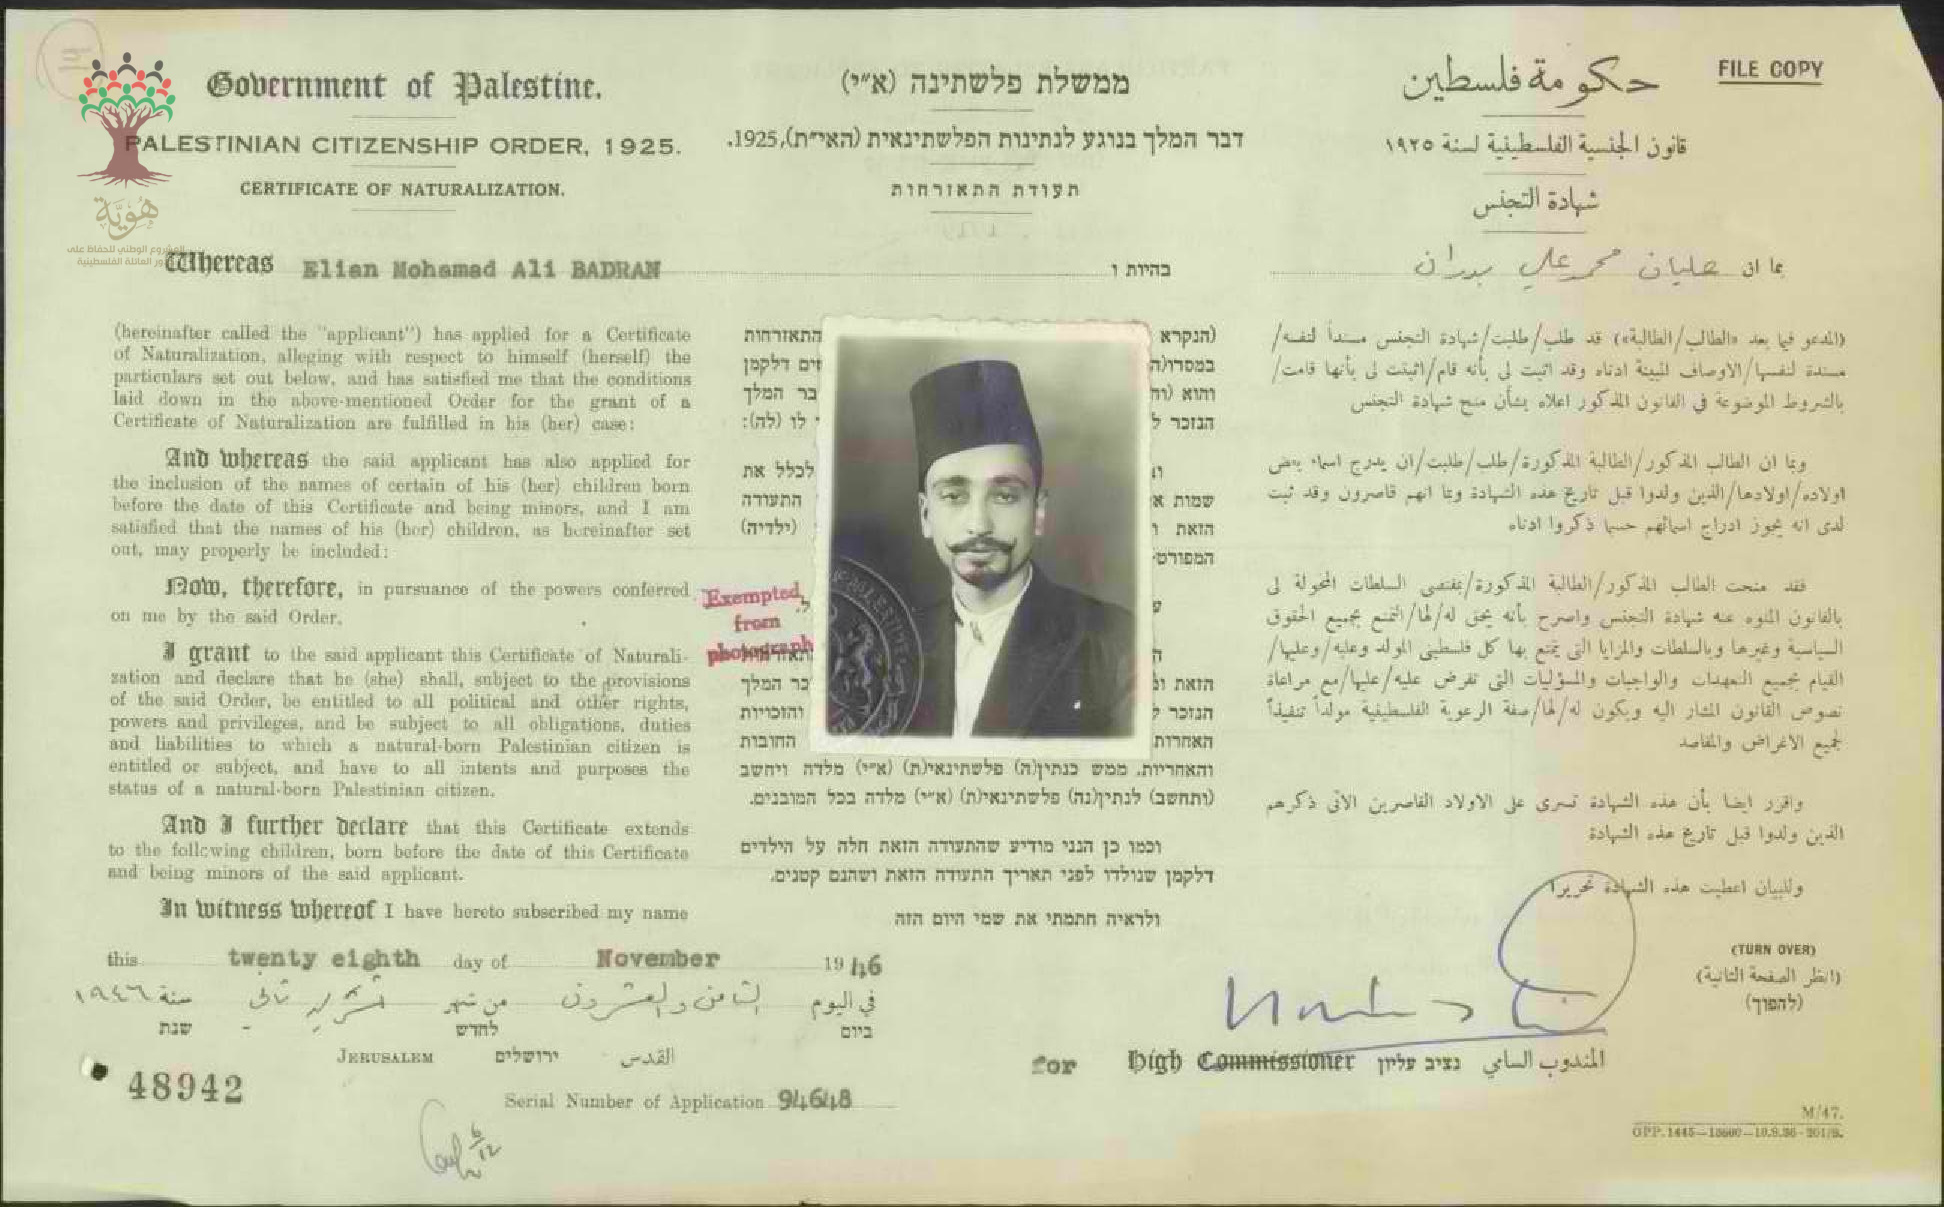 FILE COPY
Government of Palestine.
PALESTINIAN CITIZENSHIP ORDER, 1925.
CERTIFICATE OF NATURALIZATION.
هُوِيَّة
المشروع الوطني للحفاظ على
جذور العائلة الفلسطينية
Whereas Elian Mohamad Ali BADRAN
(hereinafter called the "applicant") has applied for a Certificate
of Naturalization, alleging with respect to himself (herself) the
particulars set out below, and has satisfied me that the conditions
laid down in the above-mentioned Order for the grant of a
Certificate of Naturalization are fulfilled in his (her) case:
And whereas the said applicant has also applied for
the inclusion of the names of certain of his (her) children born
before the date of this Certificate and being minors, and I am
satisfied that the names of his (her) children, as hereinafter set
out, may properly be included:
Now, therefore, in pursuance of the powers conferred
on me by the said Order,
I grant to the said applicant this Certificate of Naturali-
zation and declare that he (she) shall, subject to the provisions
of the said Order, be entitled to all political and other rights,
powers and privileges, and be subject to all obligations, duties
and liabilities to which a natural-born Palestinian citizen is
entitled or subject, and have to all intents and purposes the
status of a natural-born Palestinian citizen.
And I further declare that this Certificate extends
to the following children, born before the date of this Certificate
and being minors of the said applicant.
In witness whereof I have hereto subscribed my name
this twenty eighth day of November 1946
في اليوم الثامن والعشرون من شهر تشرين ثاني سنة ١٩٤٦
ביום לחדש שנת
JERUSALEM ירושלים القدس
48942
Serial Number of Application 94648
ממשלת פלשתינה (א״י)
דבר המלך בנוגע לנתינות הפלשתינאית (האי״ת), 1925.
תעודת התאזרחות
בהיות ו
(הנקרא התאזרחות
דלקמן
והוא בר המלך
הנזכר לו (לה):
לכלל את
שמות התעודה
הזאת (ילדיה)
המפורט
Exempted
from
photograph
הזאת בר המלך
הנזכר והזכויות
האחרות החובות
והאחריות, ממש כנתין(ה) פלשתינאי(ת) (א״י) מלדה ויחשב
(ותחשב) לנתין(נה) פלשתינאי(ת) (א״י) מלדה בכל המובנים.
וכמו כן הנני מודיע שהתעודה הזאת חלה על הילדים
דלקמן שנולדו לפני תאריך התעודה הזאת ושהנם קטנים.
ולראיה חתמתי את שמי היום הזה
حكومة فلسطين
قانون الجنسية الفلسطينية لسنة ١٩٢٥
شهادة التجنس
بما ان عليان محمد علي بدران
(المدعو فيما بعد «الطالب/الطالبة») قد طلب/طلبت/شهادة التجنس مسنداً لنفسه/
مسندة لنفسها/الاوصاف المبينة ادناه وقد اثبت لي بأنه قام/اثبتت لي بأنها قامت/
بالشروط الموضوعة في القانون المذكور اعلاه بشأن منح شهادة التجنس
وبما ان الطالب المذكور/الطالبة المذكورة/طلب/طلبت/ان يدرج اسماء بعض
اولاده/اولادها/الذين ولدوا قبل تاريخ هذه الشهادة وبما انهم قاصرون وقد ثبت
لدى انه يجوز ادراج اسمائهم حسبما ذكروا ادناه
فقد منحت الطالب المذكور/الطالبة المذكورة/بمقتضى السلطات المخولة لى
بالقانون المنوه عنه شهادة التجنس واصرح بأنه يحق له/لها/التمتع بجميع الحقوق
السياسية وغيرها وبالسلطات والمزايا التى يتمتع بها كل فلسطينى المولد وعليه/وعليها/
القيام بجميع التعهدات والواجبات والمسؤليات التى تفرض عليه/عليها/مع مراعاة
نصوص القانون المشار اليه ويكون له/لها/صفة الرعوية الفلسطينية مولداً تنفيذاً
لجميع الاغراض والمقاصد
واقرر ايضا بأن هذه الشهادة تسرى على الاولاد القاصرين الآتى ذكرهم
الذين ولدوا قبل تاريخ هذه الشهادة
وللبيان اعطيت هذه الشهادة تحريرا
(TURN OVER)
(انظر الصفحة الثانية)
(להפוך)
for High Commissioner נציב עליון المندوب السامي
M/47.
GPP. 1445—15600—10.9.36-201/S.